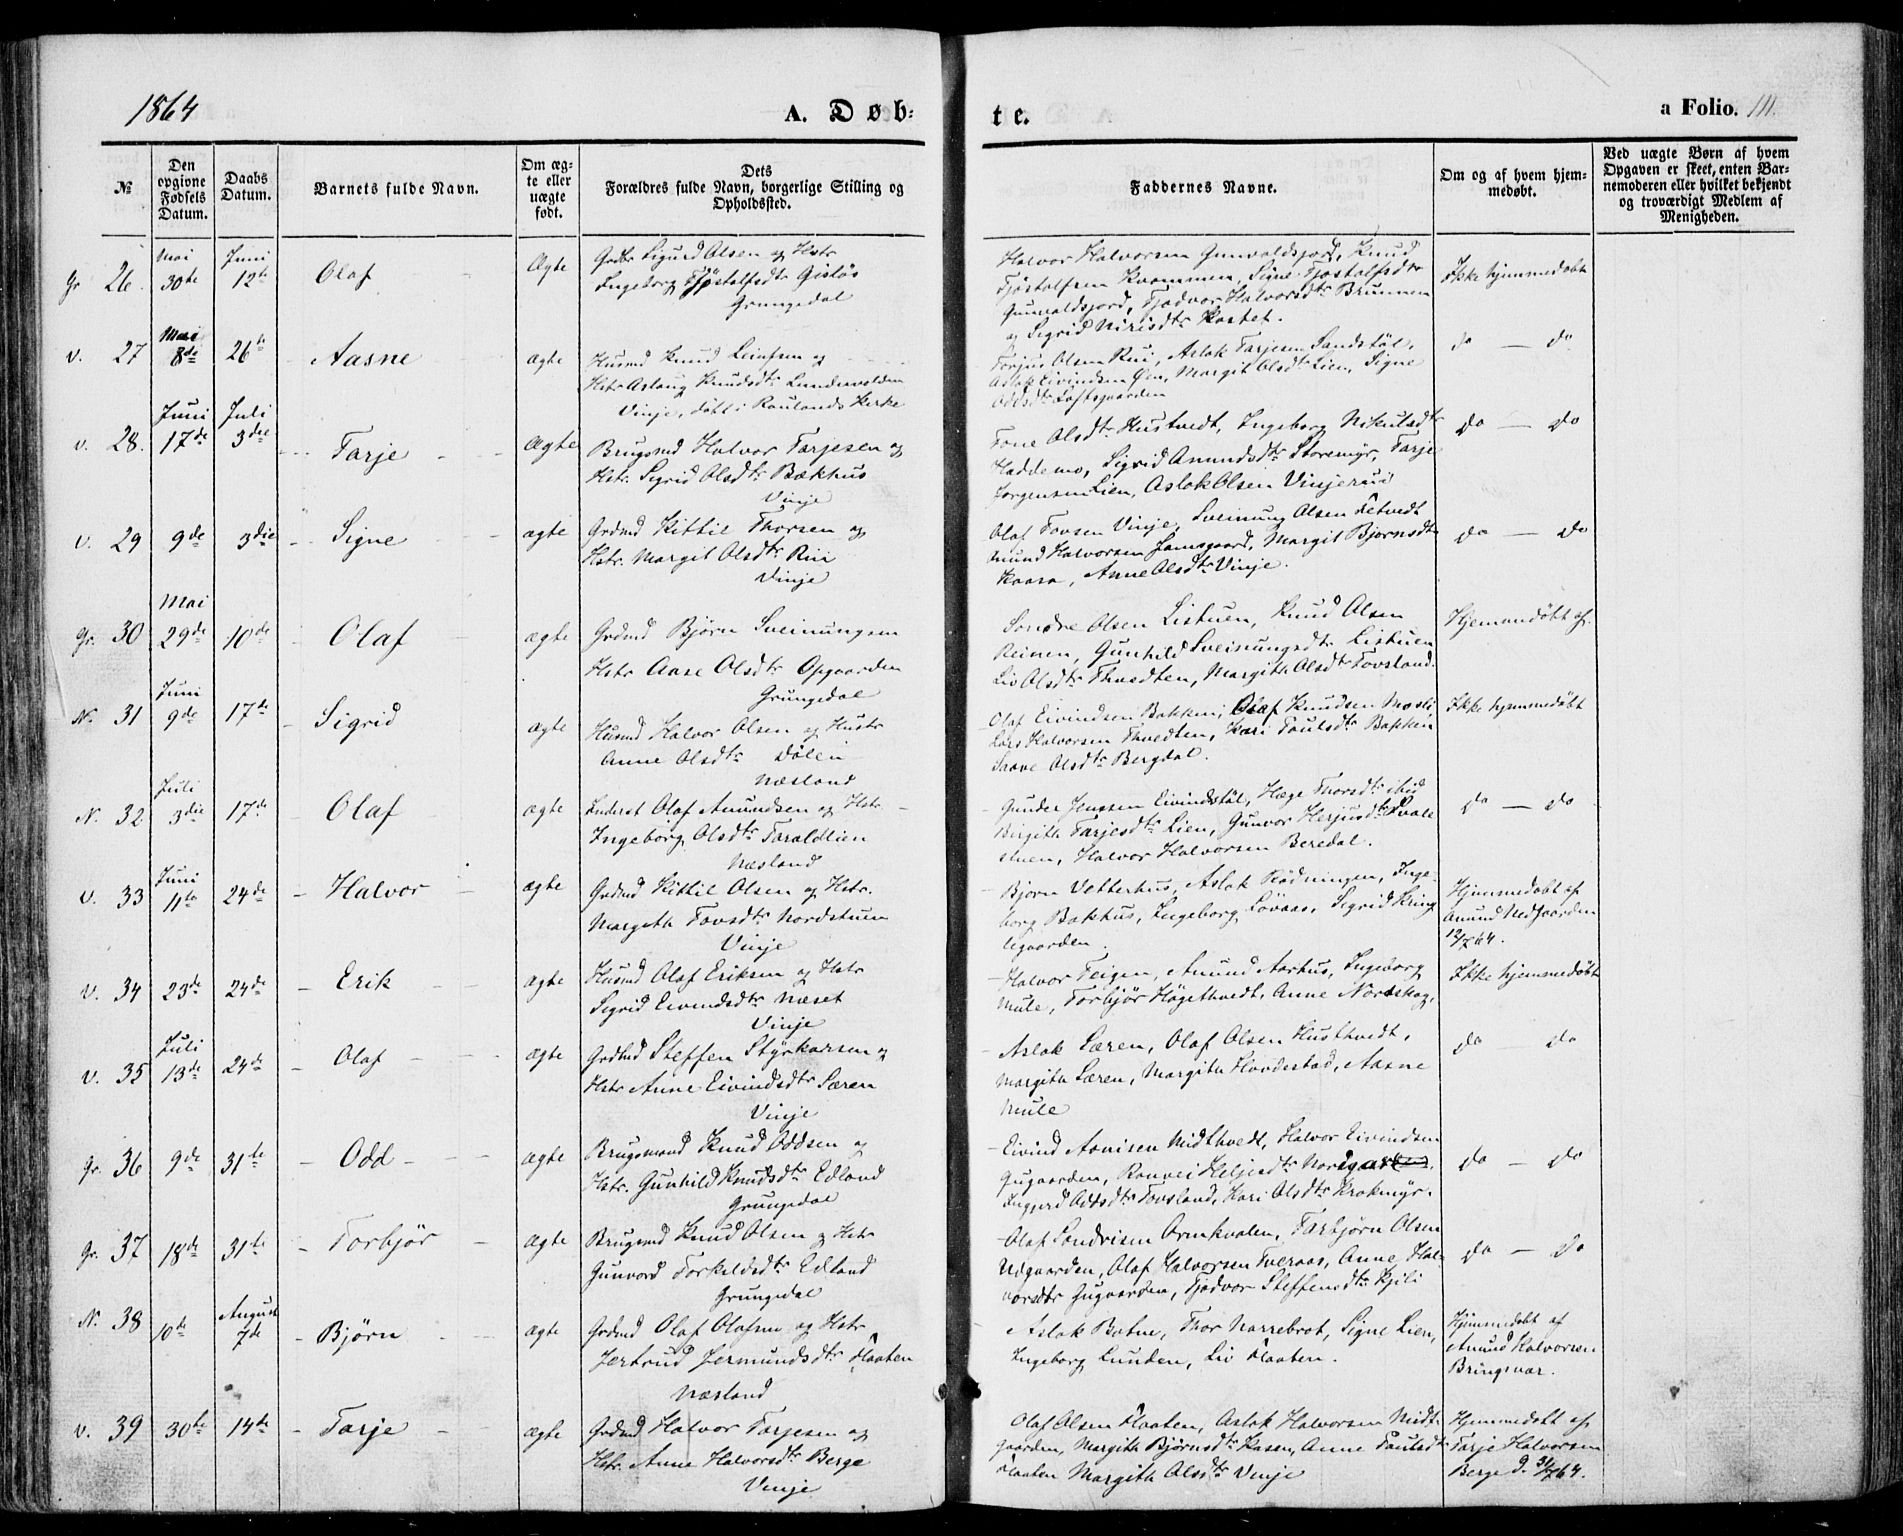 1864
A. Døb-
te.
a Folio. 111.
№
Den opgivne Fødsels Datum.
Daabs Datum.
Barnets fulde Navn.
Om ægte eller uægte født.
Dets Forældres fulde Navn, borgerlige Stilling og Opholdssted.
Faddernes Navne.
Om og af hvem hjemmedøbt.
Ved uægte Børn af hvem Opgaven er skeet, enten Barnemoderen eller hvilket bekjendt og troværdigt Medlem af Menigheden.
Gr 26. Mai 30te Juni 12te Olaf Ægte
Grdbr Sigurd Olsen og Hstr
Ingeborg Tjøstolfsdtr Gistøs
Grungedal
Halvor Halvorsen Gunvaldsjord, Knud
Tjøstolfsen Kvammen, Signe Tjostolfsdtr
Gunvaldsjord, Tjodvor Halvorsdtr Brunnen
og Sigrid Nirisdtr Kostet.
Ikke hjemmedøbt
V. 27 Mai 8de 26te Aasne ægte
Husmd Knud Leinfsen og
Hstr Aslaug Knudsdtr Lundevolden
Vinje, døbt i Raulands Kirke
Torjus Olsen Rui, Aslak Tarjesen Sandstøl,
Aslak Eivindsen Øen, Margit Olsdtr Lien, Signe
Oddsdtr Loftsgaarden
do — do
V. 28. Juni 17de Juli 3die Tarje Ægte
Brugsmd Halvor Tarjesen og
Hstr. Sigrid Olsdtr Bækhus
Vinje
Tone Olsdtr Hustvedt, Ingeborg Nikulsdtr
Haddemo, Sigrid Amundsdtr Storemyr, Tarje
Jørgensen Lien, Aslak Olsen Vinjerui
do — do
V. 29 9de 3die Signe ægte
Grdmd Kittil Thorsen og
Hstr. Margit Olsdtr Rui
Vinje
Olaf Tovsen Vinje, Sveinung Olsen Fetvedt
Amund Halvorsen Jamsgaard, Margit Bjørnsdtr
Kaasa, Anne Olsdtr Vinje.
do — do
Gr. 30 Mai 29de 10de Olaf ægte
Grdmd Bjørn Sveinungsen
Hstr Aase Olsdtr Opgaarden
Grungedal
Sondre Olsen Listuen, Knud Olsen
Reinen, Gunhild Sveinungsdtr Listuen
Liv Olsdtr Thvedten, Margith Olsdtr Tovsland.
Hjemmedøbt af.
N. 31 Juni 9de 17de Sigrid ægte
Husmd Halvor Olsen og Hustr
Anne Olsdtr Dølen
Næsland
Olaf Eivindsen Bakken, Olaf Knudsen Mosli,
Lars Halvorsen Thvedten, Kari Paulsdtr Bakken
Saave Olsdtr Bergdal.
Ikke hjemmedøbt
N. 32 Juli 3die 17de Olaf ægte
Inderst Olaf Amundsen og Hstr
Ingeborg Olsdtr Taraldlien
Næsland
Gunder Jenssen Eivindstøl, Hæge Thorsdtr ibid
Birgith Tarjesdtr Lien, Gunvor Herjusdtr Svale-
stuen, Halvor Halvorsen Beredal.
do — do
V. 33 Juni 11te 24de Halvor ægte
Grdmd Kittil Olsen og Hstr.
Margith Tovsdtr Nordstuen
Vinje
Bjørn Vetterhus, Aslak Rødningen, Inge-
borg Bakhus, Ingeborg Løvaas, Sigrid Kring
legaarden.
Hjemmedøbt af
Amund Nedgaarden
12/7 64.
V. 34 23de 24de Erik ægte
Husmd Olaf Eriksen og Hstr
Sigrid Eivindsdtr Næset
Vinje
Halvor Teigen, Amund Aarhus, Ingeborg
Mule, Torbjør Høgethvedt, Anne Nordskog.
Ikke hjemmedøbt
V. 35 Juli 13de 24de Olaf ægte
Grdmd Steffen Styrkarsen og
Hstr Anne Eivindsdtr Særen
Vinje
Aslak Særen, Olaf Olsen Husthvedt,
Margith Særen, Margith Hovdestad, Aasne
Mule
do do
Gr. 36 9de 31te Odd ægte
Brugsmand Knud Oddsen og
Hstr. Gunhild Knudsdtr Edland
Grungedal
Eivind Aanisen Midthvedt, Halvor Eivindsen
Gugaarden, Ranvei Heljesdtr Nordgarden.
Ingjerd Oddsdtr Tovsland, Kari Olsdtr Krokmyr.
do — do
Gr. 37 18de 31te Torbjør ægte
Brugsmd Knud Olsen og Hstr
Gunvord Torkildsdtr Edland
Grungedal
Olaf Sondrisen Ormhvalen, Tarbjørn Olsen
Udgaarden, Olaf Halvorsen Tveraas, Anne Hal-
vorsdtr Gugaarden, Tjodvor Steffensdtr Kjili
do — do
N. 38 10de August 7de Bjørn ægte
Grdmd Olaf Olafsen og Hstr
Jertrud Jermundsdtr Flaaten
Næsland
Aslak Botne, Thor Narrebrot, Signe Lien,
Ingeborg Lunden, Liv Flaaten.
Hjemmedøbt af
Amund Halvorsen
Bringsvær.
V. 39 30te 14de Tarje ægte
Grdmd Halvor Tarjesen og
Hstr. Anne Halvorsdtr Berge
Vinje
Olaf Olsen Flaaten, Aslak Halvorsen Midt-
gaarden, Margith Bjørnsdtr Kasen, Anne Paulsdtr
Flaaten Margith Olsdtr Vinje
Hjemmedøbt af
Tarje Halvorsen
Berge d. 31/7 64.